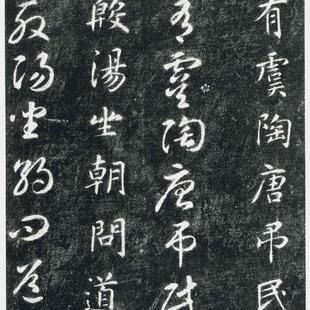 有虞陶唐弔民
有虞陶唐弔民
殷湯坐朝問道
殷湯坐朝問道